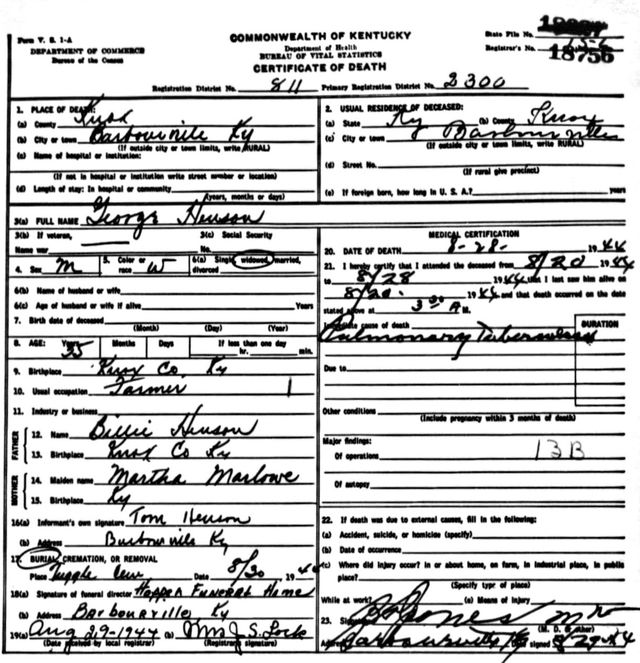 Form V. S. 1-A
DEPARTMENT OF COMMERCE
Bureau of the Census
COMMONWEALTH OF KENTUCKY
Department of Health
BUREAU OF VITAL STATISTICS
CERTIFICATE OF DEATH
State File No.
Registrar's No.
18756
Registration District No. 811 Primary Registration District No. 2300
1. PLACE OF DEATH:
(a) County Knox
(b) City or town Barbourville Ky
(If outside city or town limits, write RURAL)
(c) Name of hospital or institution:
(If not in hospital or institution write street number or location)
(d) Length of stay: In hospital or community
(years, months or days)
2. USUAL RESIDENCE OF DECEASED:
(a) State Ky (b) County Knox
(c) City or town Barbourville
(If outside city or town limits, write RURAL)
(d) Street No.
(If rural give precinct)
(e) If foreign born, how long in U. S. A.? years
3(a) FULL NAME George Henson
3(b) If veteran, Name war 3(c) Social Security No.
4. Sex M 5. Color or race W 6(a) Single, widowed, married, divorced
6(b) Name of husband or wife
6(c) Age of husband or wife if alive Years
7. Birth date of deceased
(Month) (Day) (Year)
8. AGE: Years 35 Months Days If less than one day hr. min.
9. Birthplace Knox Co. Ky
10. Usual occupation Farmer 1
11. Industry or business
FATHER
12. Name Billie Henson
13. Birthplace Knox Co Ky
MOTHER
14. Maiden name Martha Marlowe
15. Birthplace Ky
16(a) Informant's own signature Tom Henson
(b) Address Barbourville Ky
17. BURIAL, CREMATION, OR REMOVAL
Place Tuggle Cem Date 8/30 1944
18(a) Signature of funeral director Hopper Funeral Home
(b) Address Barbourville Ky
19(a) Aug 29-1944 (b) Mrs J. S. Locke
(Date received by local registrar) (Registrar's signature)
MEDICAL CERTIFICATION
20. DATE OF DEATH 8-28- 1944
21. I hereby certify that I attended the deceased from 8/20 1944
to 8/28 1944 that I last saw him alive on
8/20. 1944 and that death occurred on the date
stated above at 3 00 A M.
Immediate cause of death DURATION
Pulmonary Tuberculosis
Due to
Other conditions
(Include pregnancy within 3 months of death)
Major findings:
Of operations 13B
Of autopsy
22. If death was due to external causes, fill in the following:
(a) Accident, suicide, or homicide (specify)
(b) Date of occurrence
(c) Where did injury occur? In or about home, on farm, in industrial place, in public place?
(Specify type of place)
While at work? (e) Means of Injury
23. Signature Jones MD
(M. D. or other)
Address Barbourville Ky Date signed 8/29-44